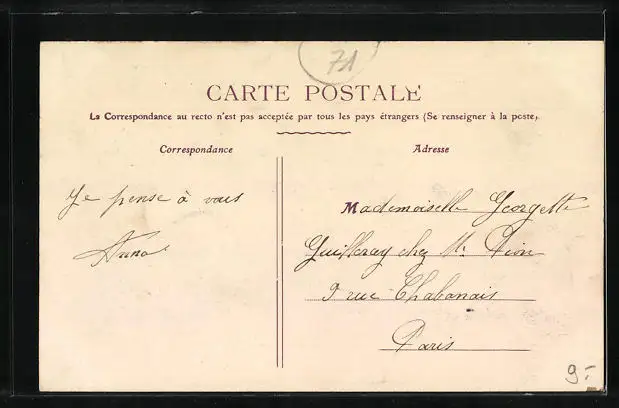 71
CARTE POSTALE
La Correspondance au recto n'est pas acceptée par tous les pays étrangers (Se renseigner à la poste).
Correspondance
Adresse
Je pense à vous
Anna
Mademoiselle Georgette
chez Mr Dion
9 rue Chabanais
Paris
9-